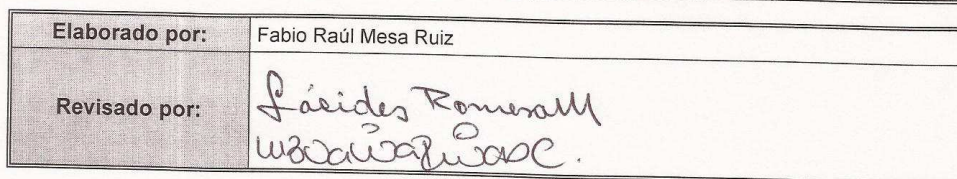 Elaborado por: Fabio Raúl Mesa Ruiz
Revisado por: Lácides Romero M